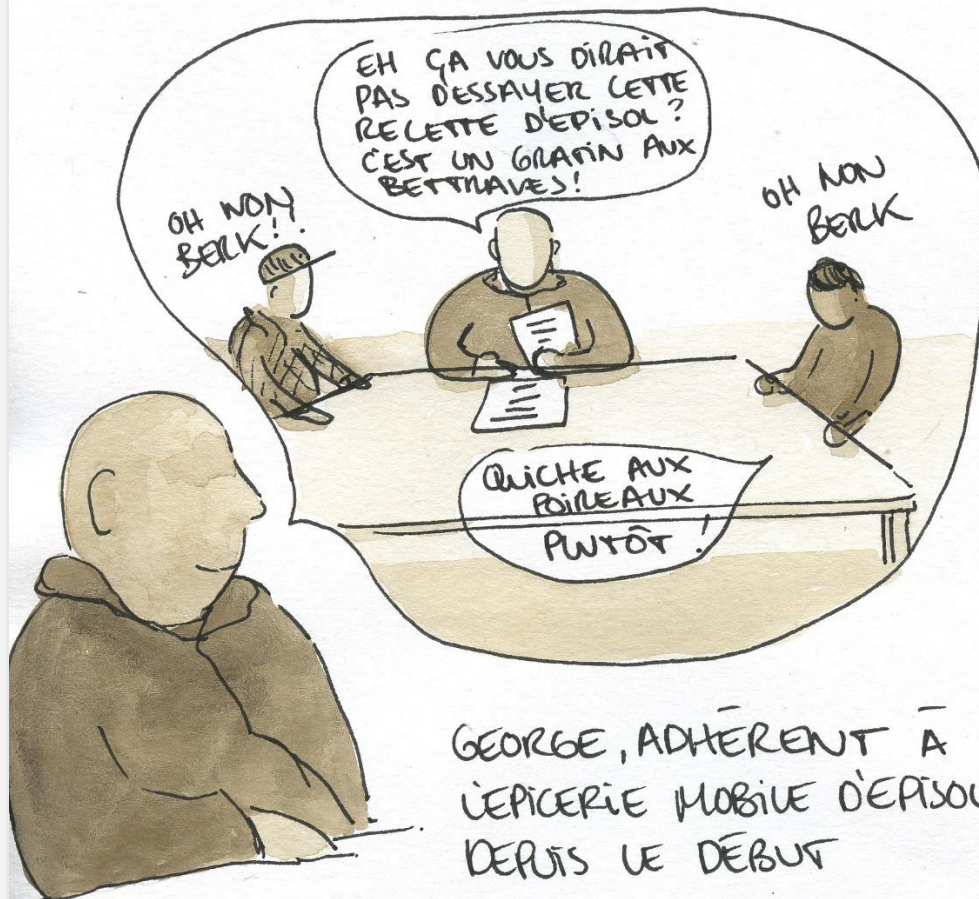 EH ÇA VOUS DIRAIT
PAS D'ESSAYER CETTE
RECETTE D'EPISOL?
C'EST UN GRATIN AUX
BETTRAVES!
OH NON
BERK!!
OH NON
BERK
QUICHE AUX
POIREAUX
PLUTÔT!
GEORGE, ADHÉRENT À
L'EPICERIE MOBILE D'EPISOL
DEPUIS LE DÉBUT